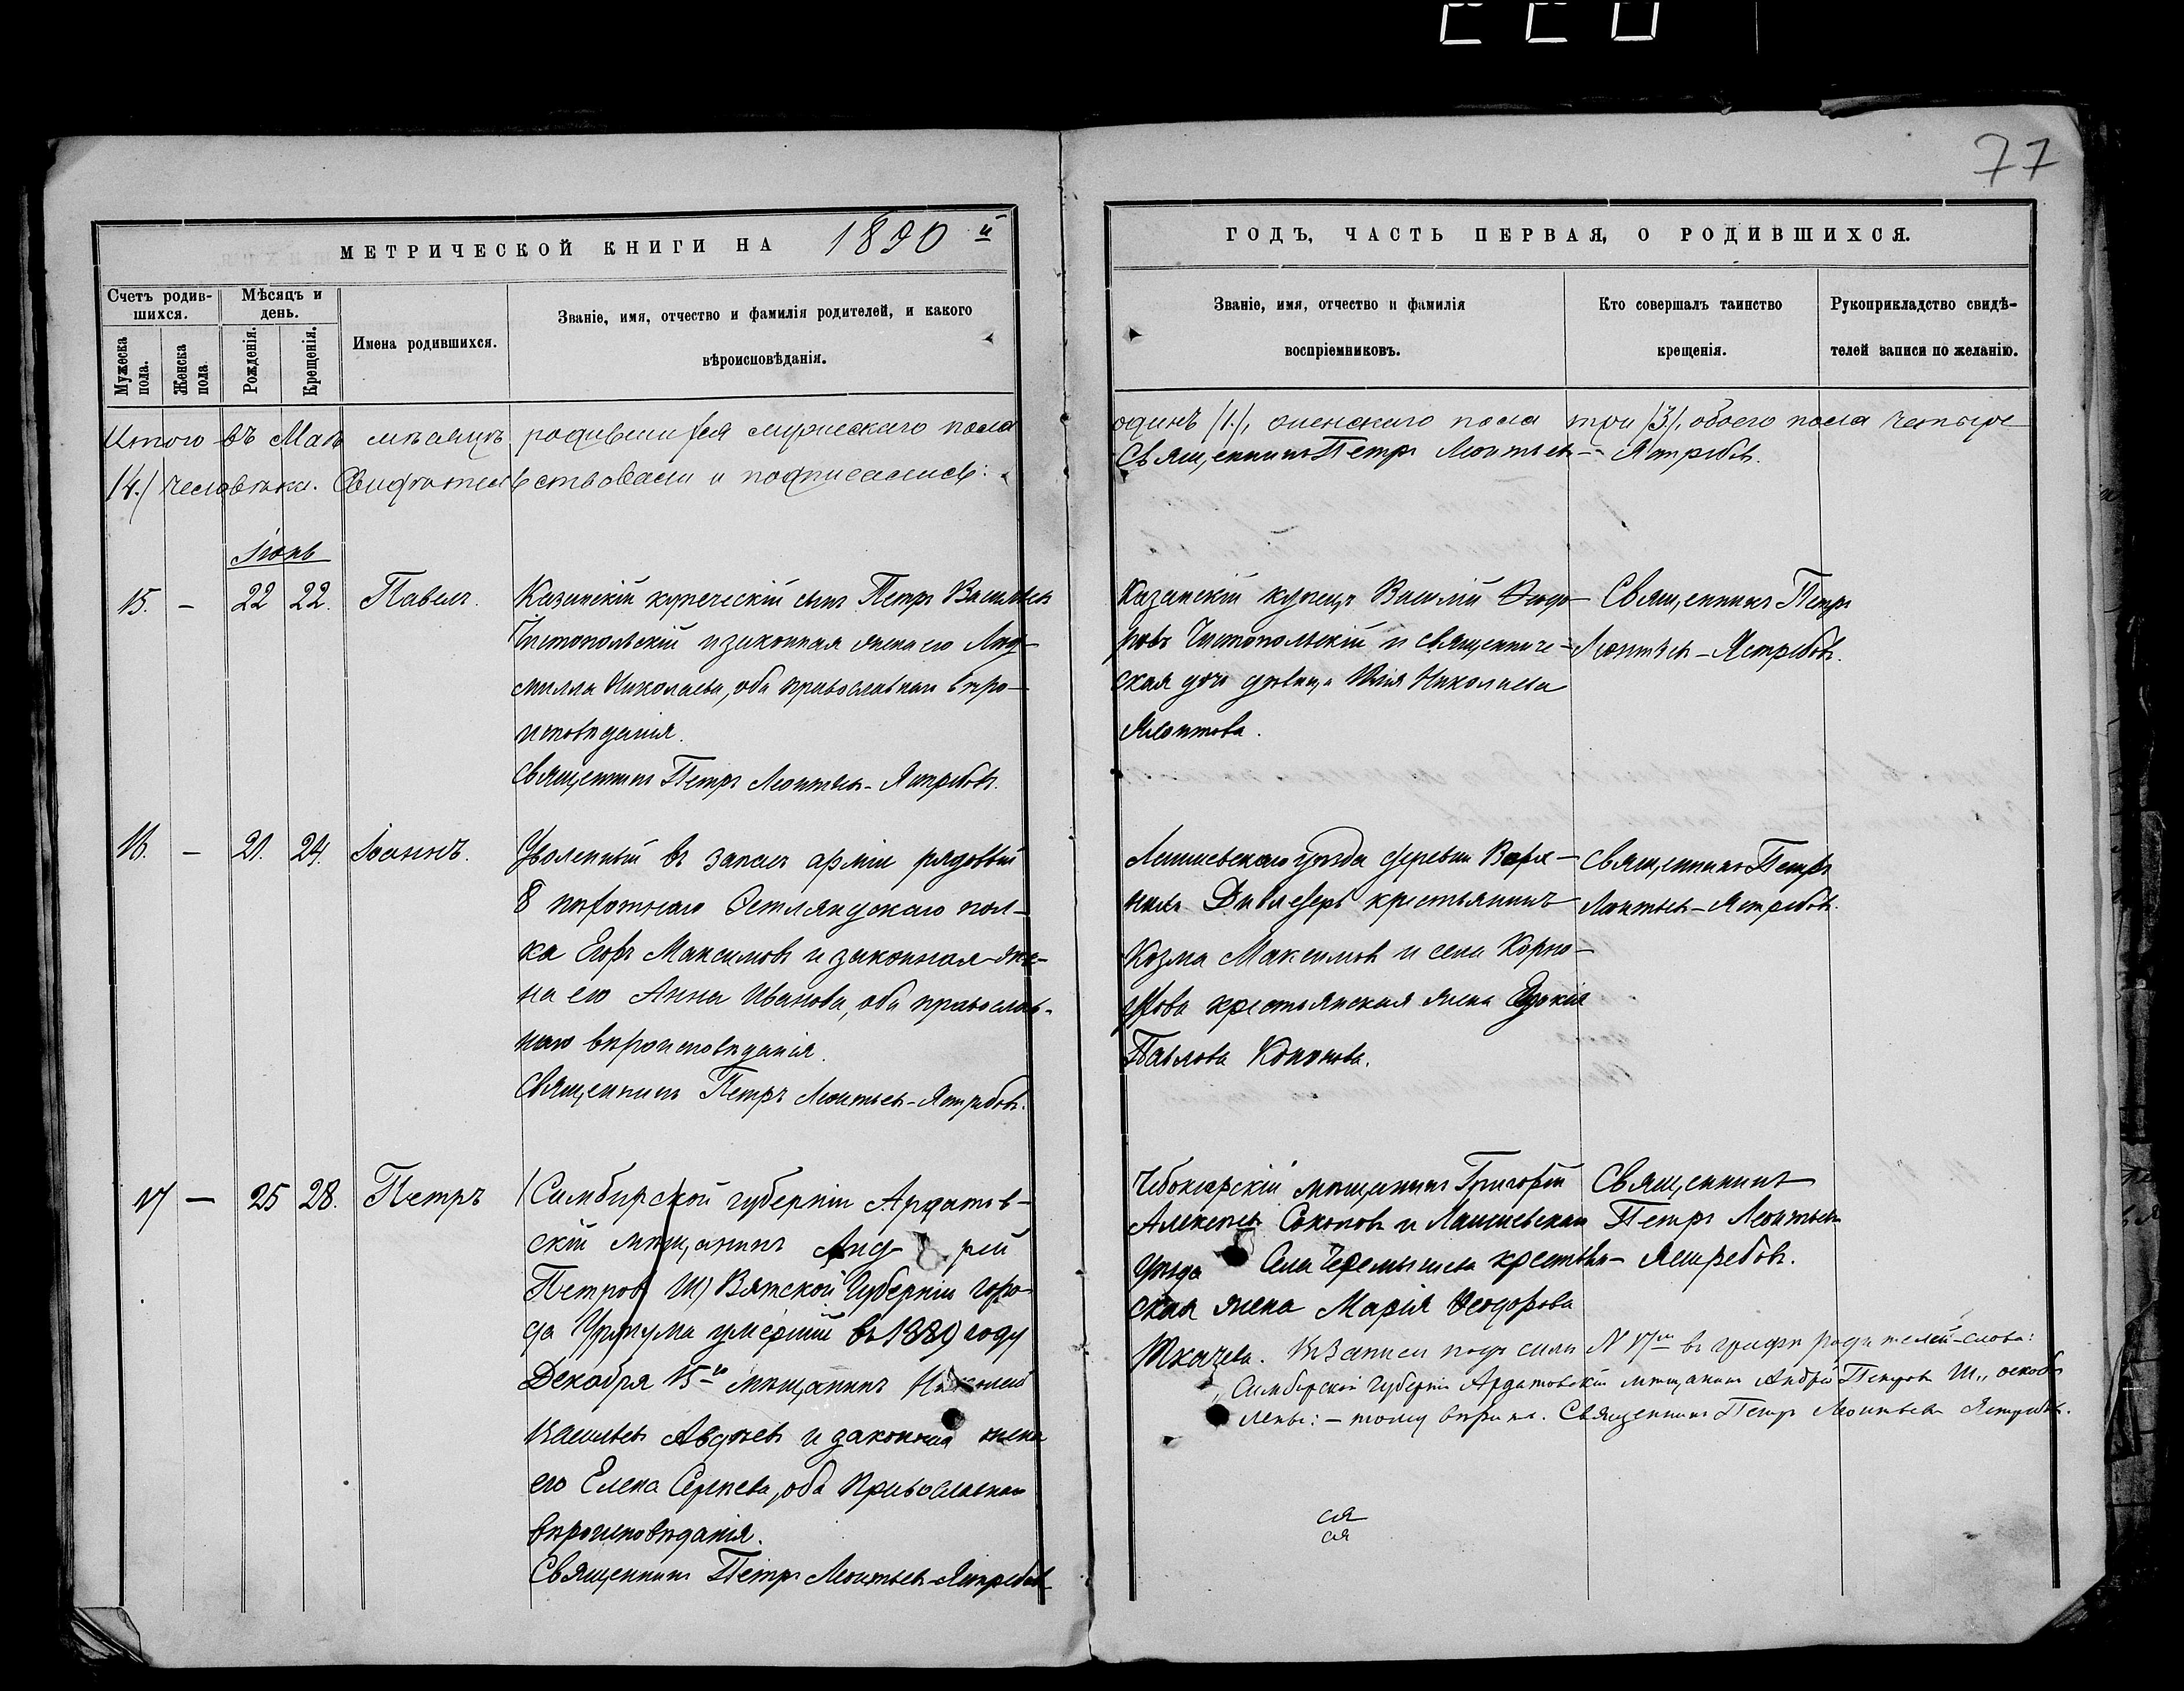 77
МЕТРИЧЕСКОЙ КНИГИ НА 1890 й
ГОДЪ, ЧАСТЬ ПЕРВАЯ, О РОДИВШИХСЯ.
Счетъ родив-
шихся.
Мужеска пола.
Женска пола.
Мѣсяцъ и
день.
Рожденія.
Крещенія.
Имена родившихся.
Званіе, имя, отчество и фамилія родителей, и какого
вѣроисповѣданія.
Званіе, имя, отчество и фамилія
воспріемниковъ.
Кто совершалъ таинство
крещенія.
Рукоприкладство свидѣ-
телей записи по желанію.
Итого въ Маѣ мѣсяцѣ родившихся мужескаго пола
/4./ человѣка. Свидѣтельствовали и подписались:
одинъ /1./, женскаго пола три /3./, обоего пола четыре
Священникъ Петръ Леонтьевъ-Ястребовъ.
Іюнь
15. – 22 22. Павелъ.
Казанскій купеческій сынъ Петръ Васильевъ
Чистопольскій и законная жена его Люд-
милла Николаева, оба православнаго вѣро-
исповѣданія.
Священникъ Петръ Леонтьевъ-Ястребовъ.
Казанскій купецъ Василій Ѳедо-
ровъ Чистопольскій и священниче-
ская дочь дѣвица Юлія Николаева
Священникъ Петръ
Леонтьевъ-Ястребовъ.
16. – 21. 24. Іоаннъ.
Уволенный въ запасъ арміи рядовый
8 пѣхотнаго Естляндскаго пол-
ка Егоръ Максимовъ и законная же-
на его Анна Иванова, оба православ-
наго вѣроисповѣданія.
Священникъ Петръ Леонтьевъ-Ястребовъ.
Лаишевскаго уѣзда деревни
крестьянинъ
Козма Максимовъ и села
крестьянская жена Евдокія
Павлова Кононова.
Священникъ Петръ
Леонтьевъ-Ястребовъ.
17 – 25 28. Петръ
(Симбирской губерніи Ардатов-
скій мѣщанинъ Анд- рей
Петровъ Ш) Вятской Губерніи горо-
да Уржума умершій въ 1889 году
Декабря 15го мѣщанинъ Николай
Васильевъ Авдѣевъ и законная жена
его Елена Сергѣева, оба православнаго
вѣроисповѣданія.
Священникъ Петръ Леонтьевъ-Ястребовъ
Чебоксарскій мѣщанинъ Григорій
Алексѣевъ Соколовъ и Лаишевскаго
уѣзда Села Черемышева крестьян-
ская жена Марія Ѳеодорова
Ткачева.
Священникъ
Петръ Леонтьевъ
Ястребовъ.
Въ Записи подъ симъ № 17м въ графѣ родителей-слова:
„Симбирской Губерніи Ардатовскій мѣщанинъ Андрей Петровъ Ш„ оскоб
лены: – тому вѣрить. Священникъ Петръ Леонтьевъ Ястребовъ.
ся
ся